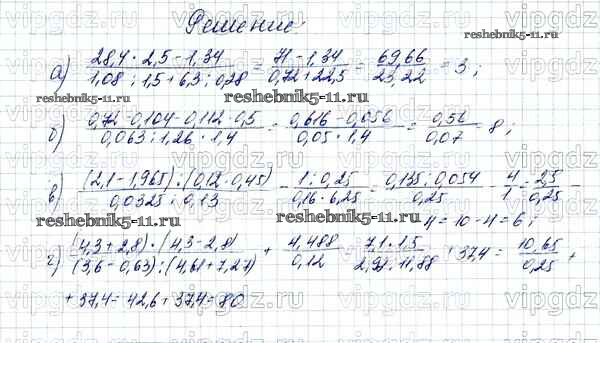 Решение:
а) (28,4 · 2,5 - 1,34)/(1,08 : 1,5 + 6,3 : 0,28) = (71 - 1,34)/(0,72 + 22,5) = 69,66/23,22 = 3;
reshebnik5-11.ru reshebnik5-11.ru
б) (0,72 - 0,104 - 0,112 · 0,5)/(0,063 : 1,26 · 1,4) = (0,616 - 0,056)/(0,05 · 1,4) = 0,56/0,07 8;
reshebnik5-11.ru
в) ((2,1 - 1,965) : (0,12 · 0,45))/(0,0325 : 0,13) - (1 : 0,25)/(0,16 · 6,25) = (0,135 : 0,054)/0,25 - 4/1 = 2,5/0,25 -
reshebnik5-11.ru reshebnik5-11.ru
- 4 = 10 - 4 = 6;
г) (4,3 + 2,8) · (4,3 - 2,8)/(3,6 - 0,63) : (4,61 + 7,27) + 4,488/0,12 (7,1 · 1,5)/(2,97 : 11,88) + 37,4 = 10,65/0,25 +
reshebnik5-11.ru
+ 37,4 = 42,6 + 37,4 = 80
vipgdz.ru